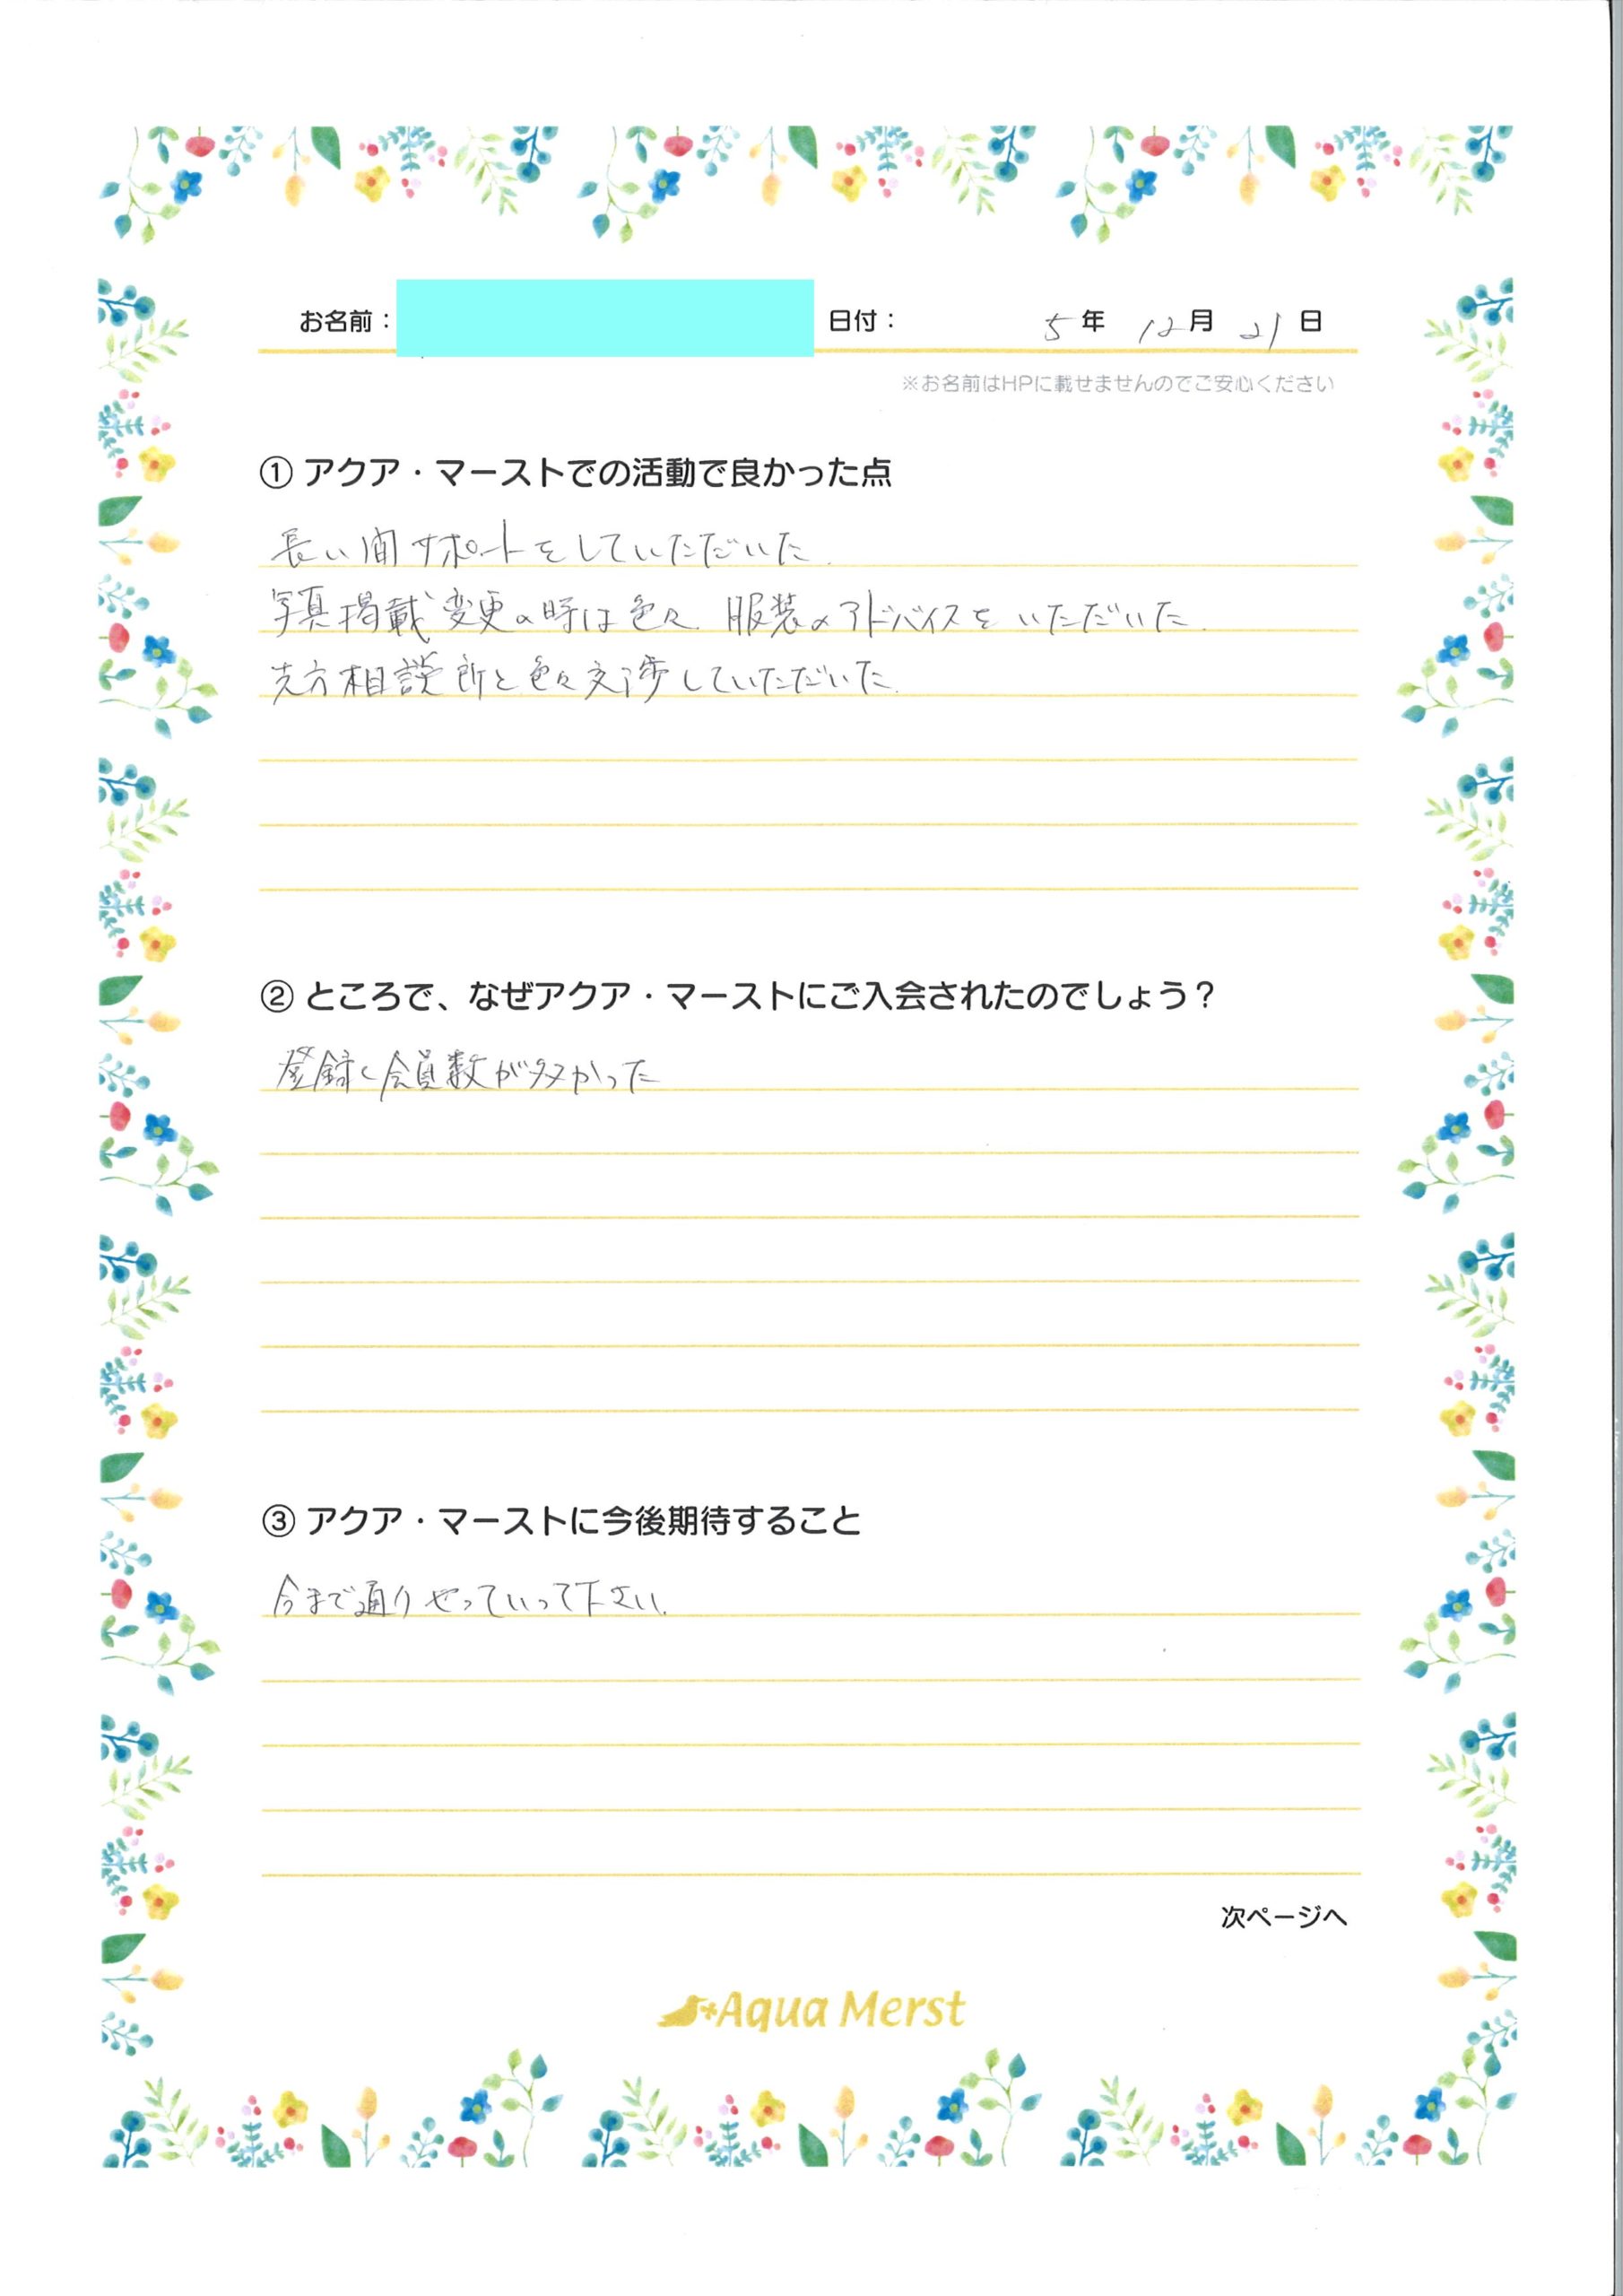 お名前： 日付： 5年 12月 21日
※お名前はHPに載せませんのでご安心ください
① アクア・マーストでの活動で良かった点
長い間サポートをしていただいた.
写真掲載変更の時は色々、服装のアドバイスをいただいた.
先方相談所と色々交渉していただいた.
② ところで、なぜアクア・マーストにご入会されたのでしょう？
登録く会員数が多かった
③ アクア・マーストに今後期待すること
今まで通りやっていって下さい.
次ページへ
Aqua Merst